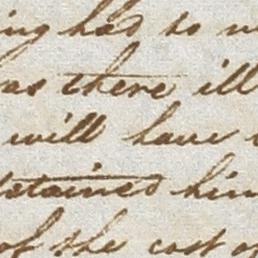 ing had to
as there ill
will have
detained him
of the cost of